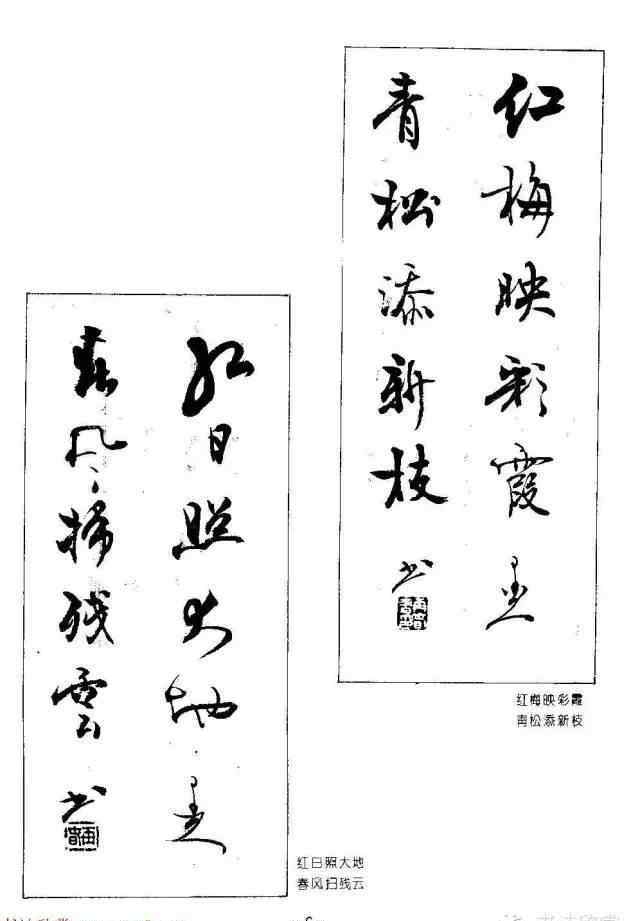 红梅映彩霞
青松添新枝
书
红梅映彩霞
青松添新枝
红日照大地
春风扫残云
书
红日照大地
春风扫残云